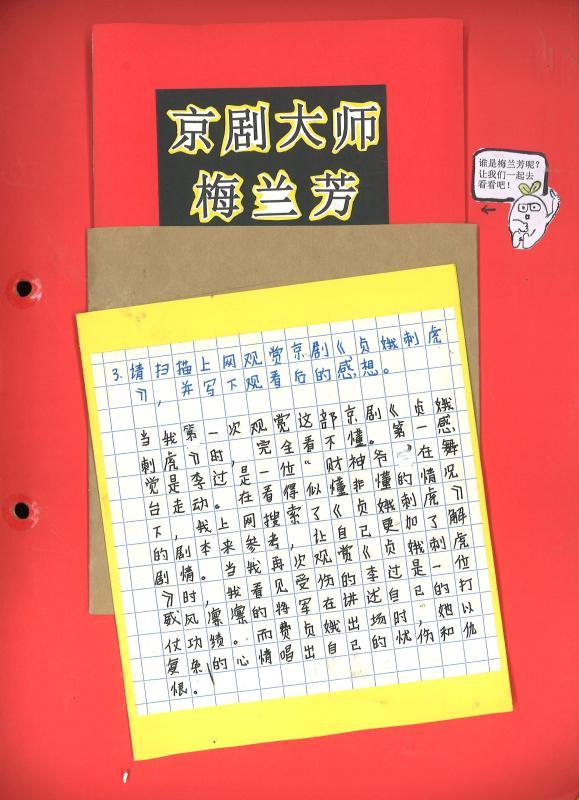 京剧大师
梅兰芳
谁是梅兰芳呢?
让我们一起去
看看吧!
3. 请扫描上网观赏京剧《贞娥刺虎
》,并写下观看后的感想。
当我第一次观赏这部京剧《贞娥
刺虎》时,完全看不懂。第一感
觉是李过,是一位“财神爷”在舞
台走动。在看得似懂非懂的情况
下,我上网搜索了《贞娥刺虎》
的剧本来参考,让自己更加了解
剧情。当我再次观赏《贞娥刺虎
》时,我看见受伤的李过是一位
威风凛凛的将军在讲述自己的打
仗功绩。而费贞娥出场时,她以
复杂的心情唱出自己的忧伤和仇
恨。